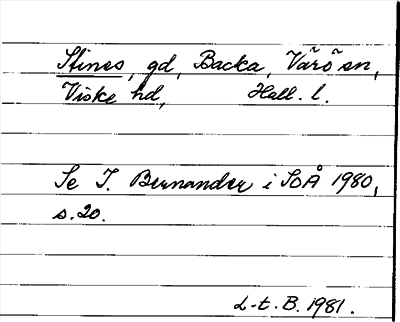 Stines, gd, Backa, Värö sn,
Viske hd, Hall. l.
Se I. Bernander i SOÅ 1980,
s. 20.
L-t. B. 1981.